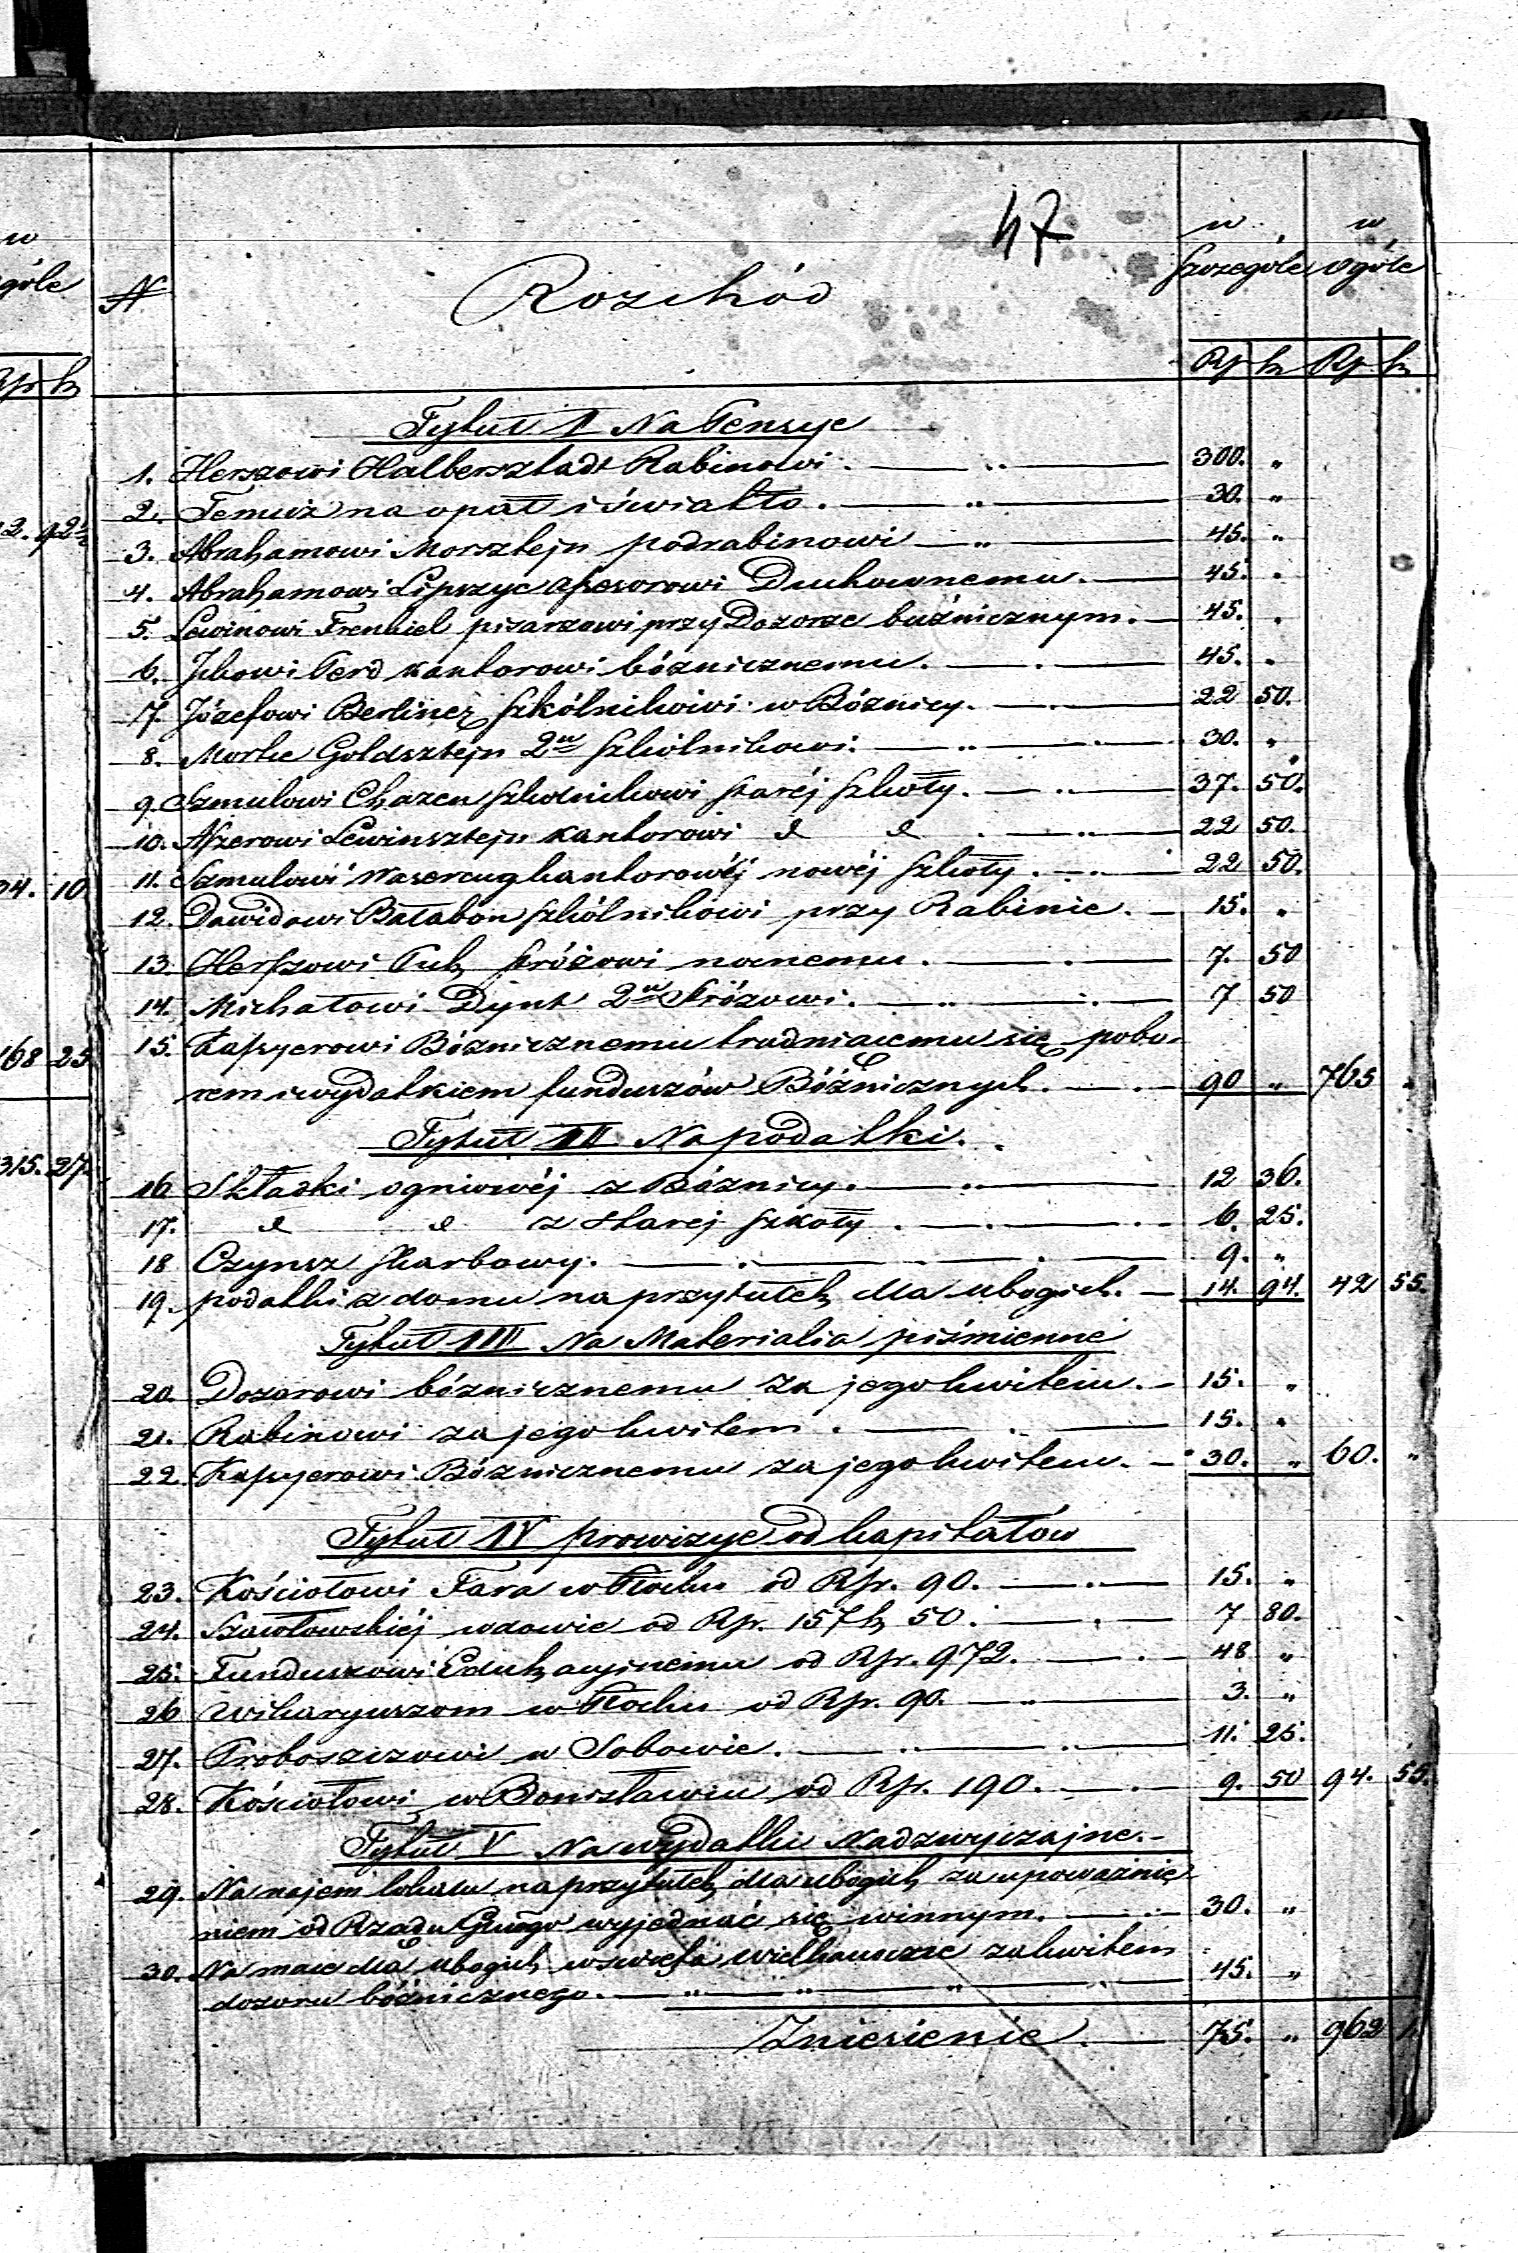 47
w w
Szczególe ogóle
N Rozchód
Rsr k Rsr k
Tytuł I Na Pensye
1. Herszowi Halbersztadt Rabinowi 300. "
2. Temuż na opał i światło. 30. "
3. Abrahamowi Morsztejn podrabinowi 45. "
4. Abrahamowi Lipszyc Assesorowi Duchownemu. 45. "
5. Lewinowi Frenkiel pisarzowi przy Dozorze buźnicznym. 45. "
6. Ickowi Perd kantorowi bóznicznemu. 45. "
7. Józefowi Berliner Szkólnikowi w Bóznicy. 22 50.
8. Morke Goldsztejn 2mu Szkólnikowi. 30. "
9. Szmulowi Chazen Szkolnikowi staréj Szkoły. 37. 50.
10. Aszerowi Lewinsztejn kantorowi d d 22 50.
11. Szmulowi Wasercug kantorowéj nowéj Szkoły. 22 50.
12. Dawidowi Bałabon Szkólnikowi przy Rabinie. 15. "
13. Herszowi Puk stróżowi nocnemu. 7. 50
14. Michałowi Dynt 2mu Stróżowi. 7 50
15. Kassyerowi Bóznicznemu trudniącemu się pobo-
rem i wydatkiem funduszów Bóźnicznych. 90 " 765 "
Tytuł II Na podatki.
16 Składki ogniowéj z Bóznicy. 12 36.
17. d d z starej Szkoły. 6. 25.
18 Czynsz Skarbowy. 9. "
19. podatki z domu na przytułek dla ubogich. 14. 94. 42 55.
Tytuł III Na Materialia piśmienne
20. Dozorowi bóznicznemu za jego kwitem. 15. "
21. Rabinowi za jego kwitem. 15. "
22. Kassyerowi Bóznicznemu za jego kwitem. 30. " 60. "
Tytuł IV prowizye od kapitałów
23. Kościołowi Fara w Płocku od Rsr. 90. 15. "
24. Szawłowskiéj wdowie od Rsr. 157 k 50. 7 80.
25. Funduszowi Edukacyinemu od Rsr. 972. 48 "
26 Wikaryuszom w Płocku od Rsr. 90. 3. "
27. Proboszczowi w Sobowie. 11. 25.
28. Kościołowi w Bonisławiu od Rsr. 190. 9. 50 94. 55.
Tytuł V Na wydatki Nadzwyczajne.
29. Na najem lokalu na przytułek dla ubogich za upoważnie-
niem od Rządu Gub: wyjednać się winnym. 30. "
30. Na mace dla ubogich w święta Wielkanocne za kwitem
dozoru bóźnicznego. 45. "
Zniesienie 75. " 962
w
góle
Rsr k
2. 92½
34. 10
168 25
315. 27